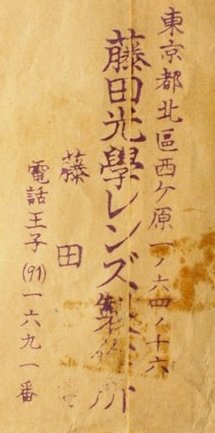 東京都北區西ケ原一ノ六四ノ十六
藤田光學レンズ製作所
藤田
電話王子(91)一六九一番